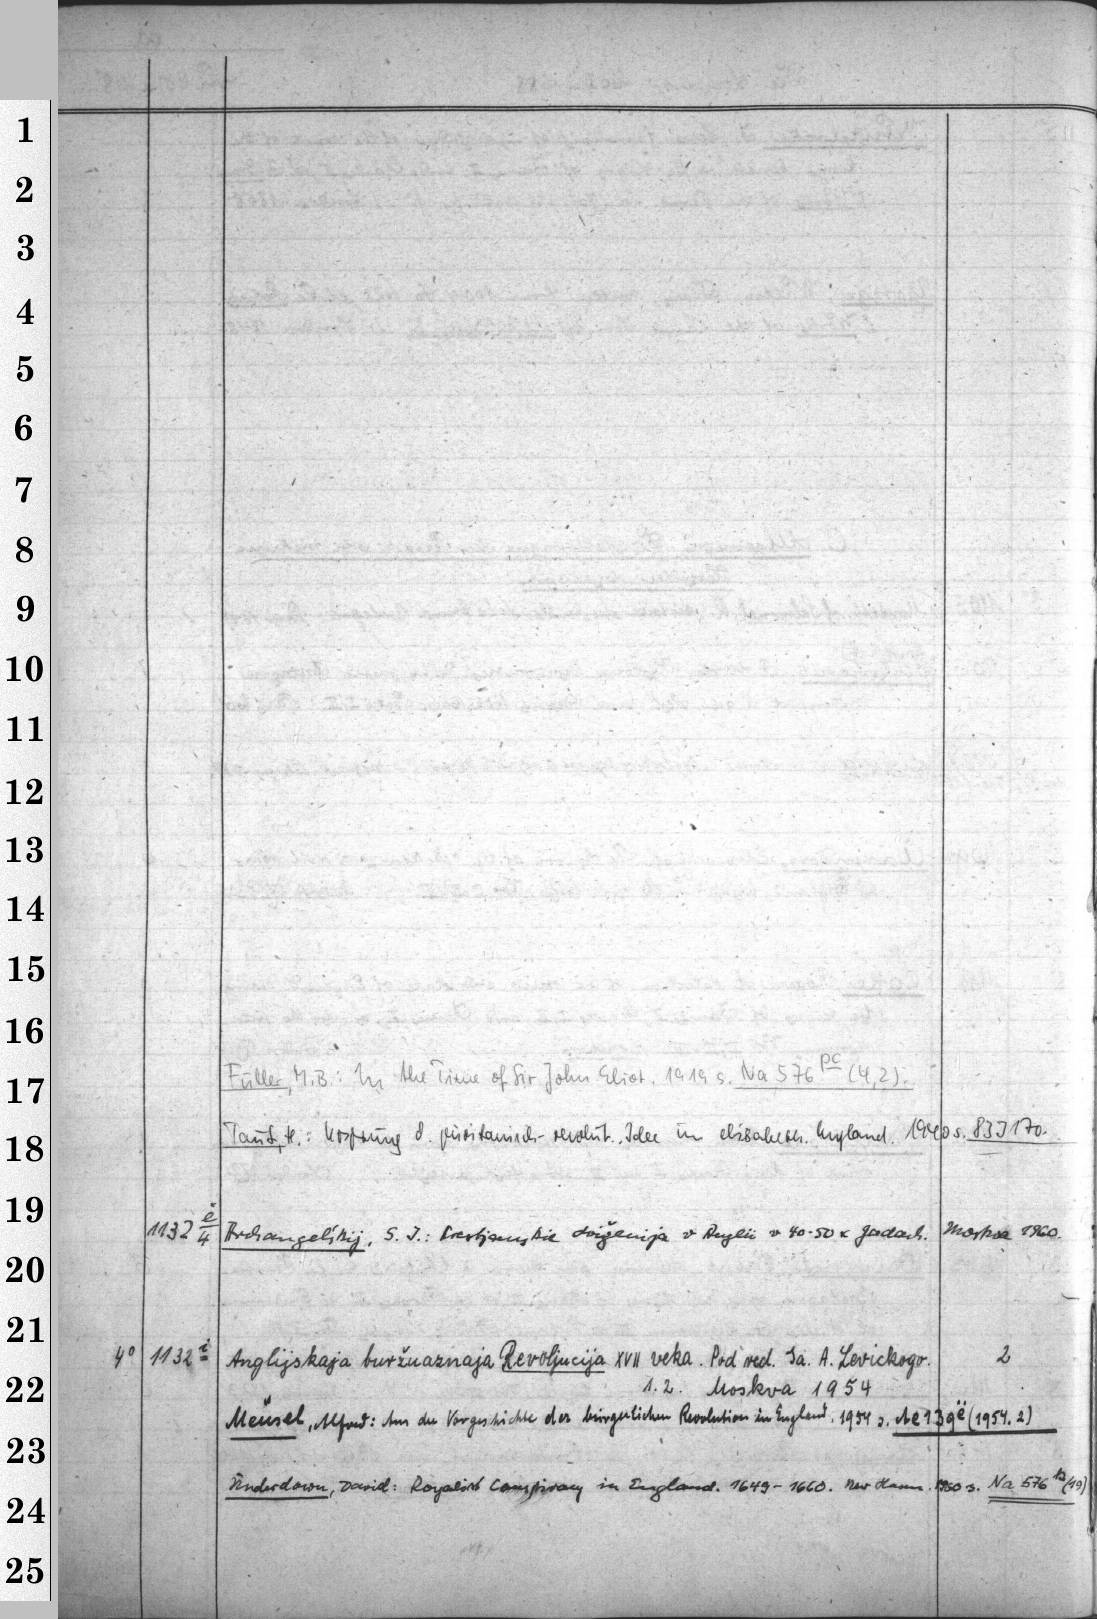 1
2
3
4
5
6
7
8
9
10
11
12
13
14
15
16
17
18
19
20
21
22
23
24
25
Füller, M.B.: In the Time of Sir John Eliot. 1919 s. Na 576 pc (4,2).
Taut, K.: Ursprung d. puritanisch-revolut. Idee in elisabeth. England. 1940 s. 83J170.
1132 ë/4 Archangel'skij, S. I.: Krestjanskie dviženija v Anglii v 40-50 x godach. Moskva 1960.
4° 1132 i Anglijskaja buržuaznaja Revoljucija XVII veka. Pod red. Ja. A. Levickogo. 2
1. 2. Moskva 1954
Meusel, Alfred: Aus der Vorgeschichte der bürgerlichen Revolution in England. 1954 s. Ae 139 ë (1954. 2)
Underdown, David: Royalist Conspiracy in England. 1649-1660. New Haven. 1960 s. Na 576 (19)